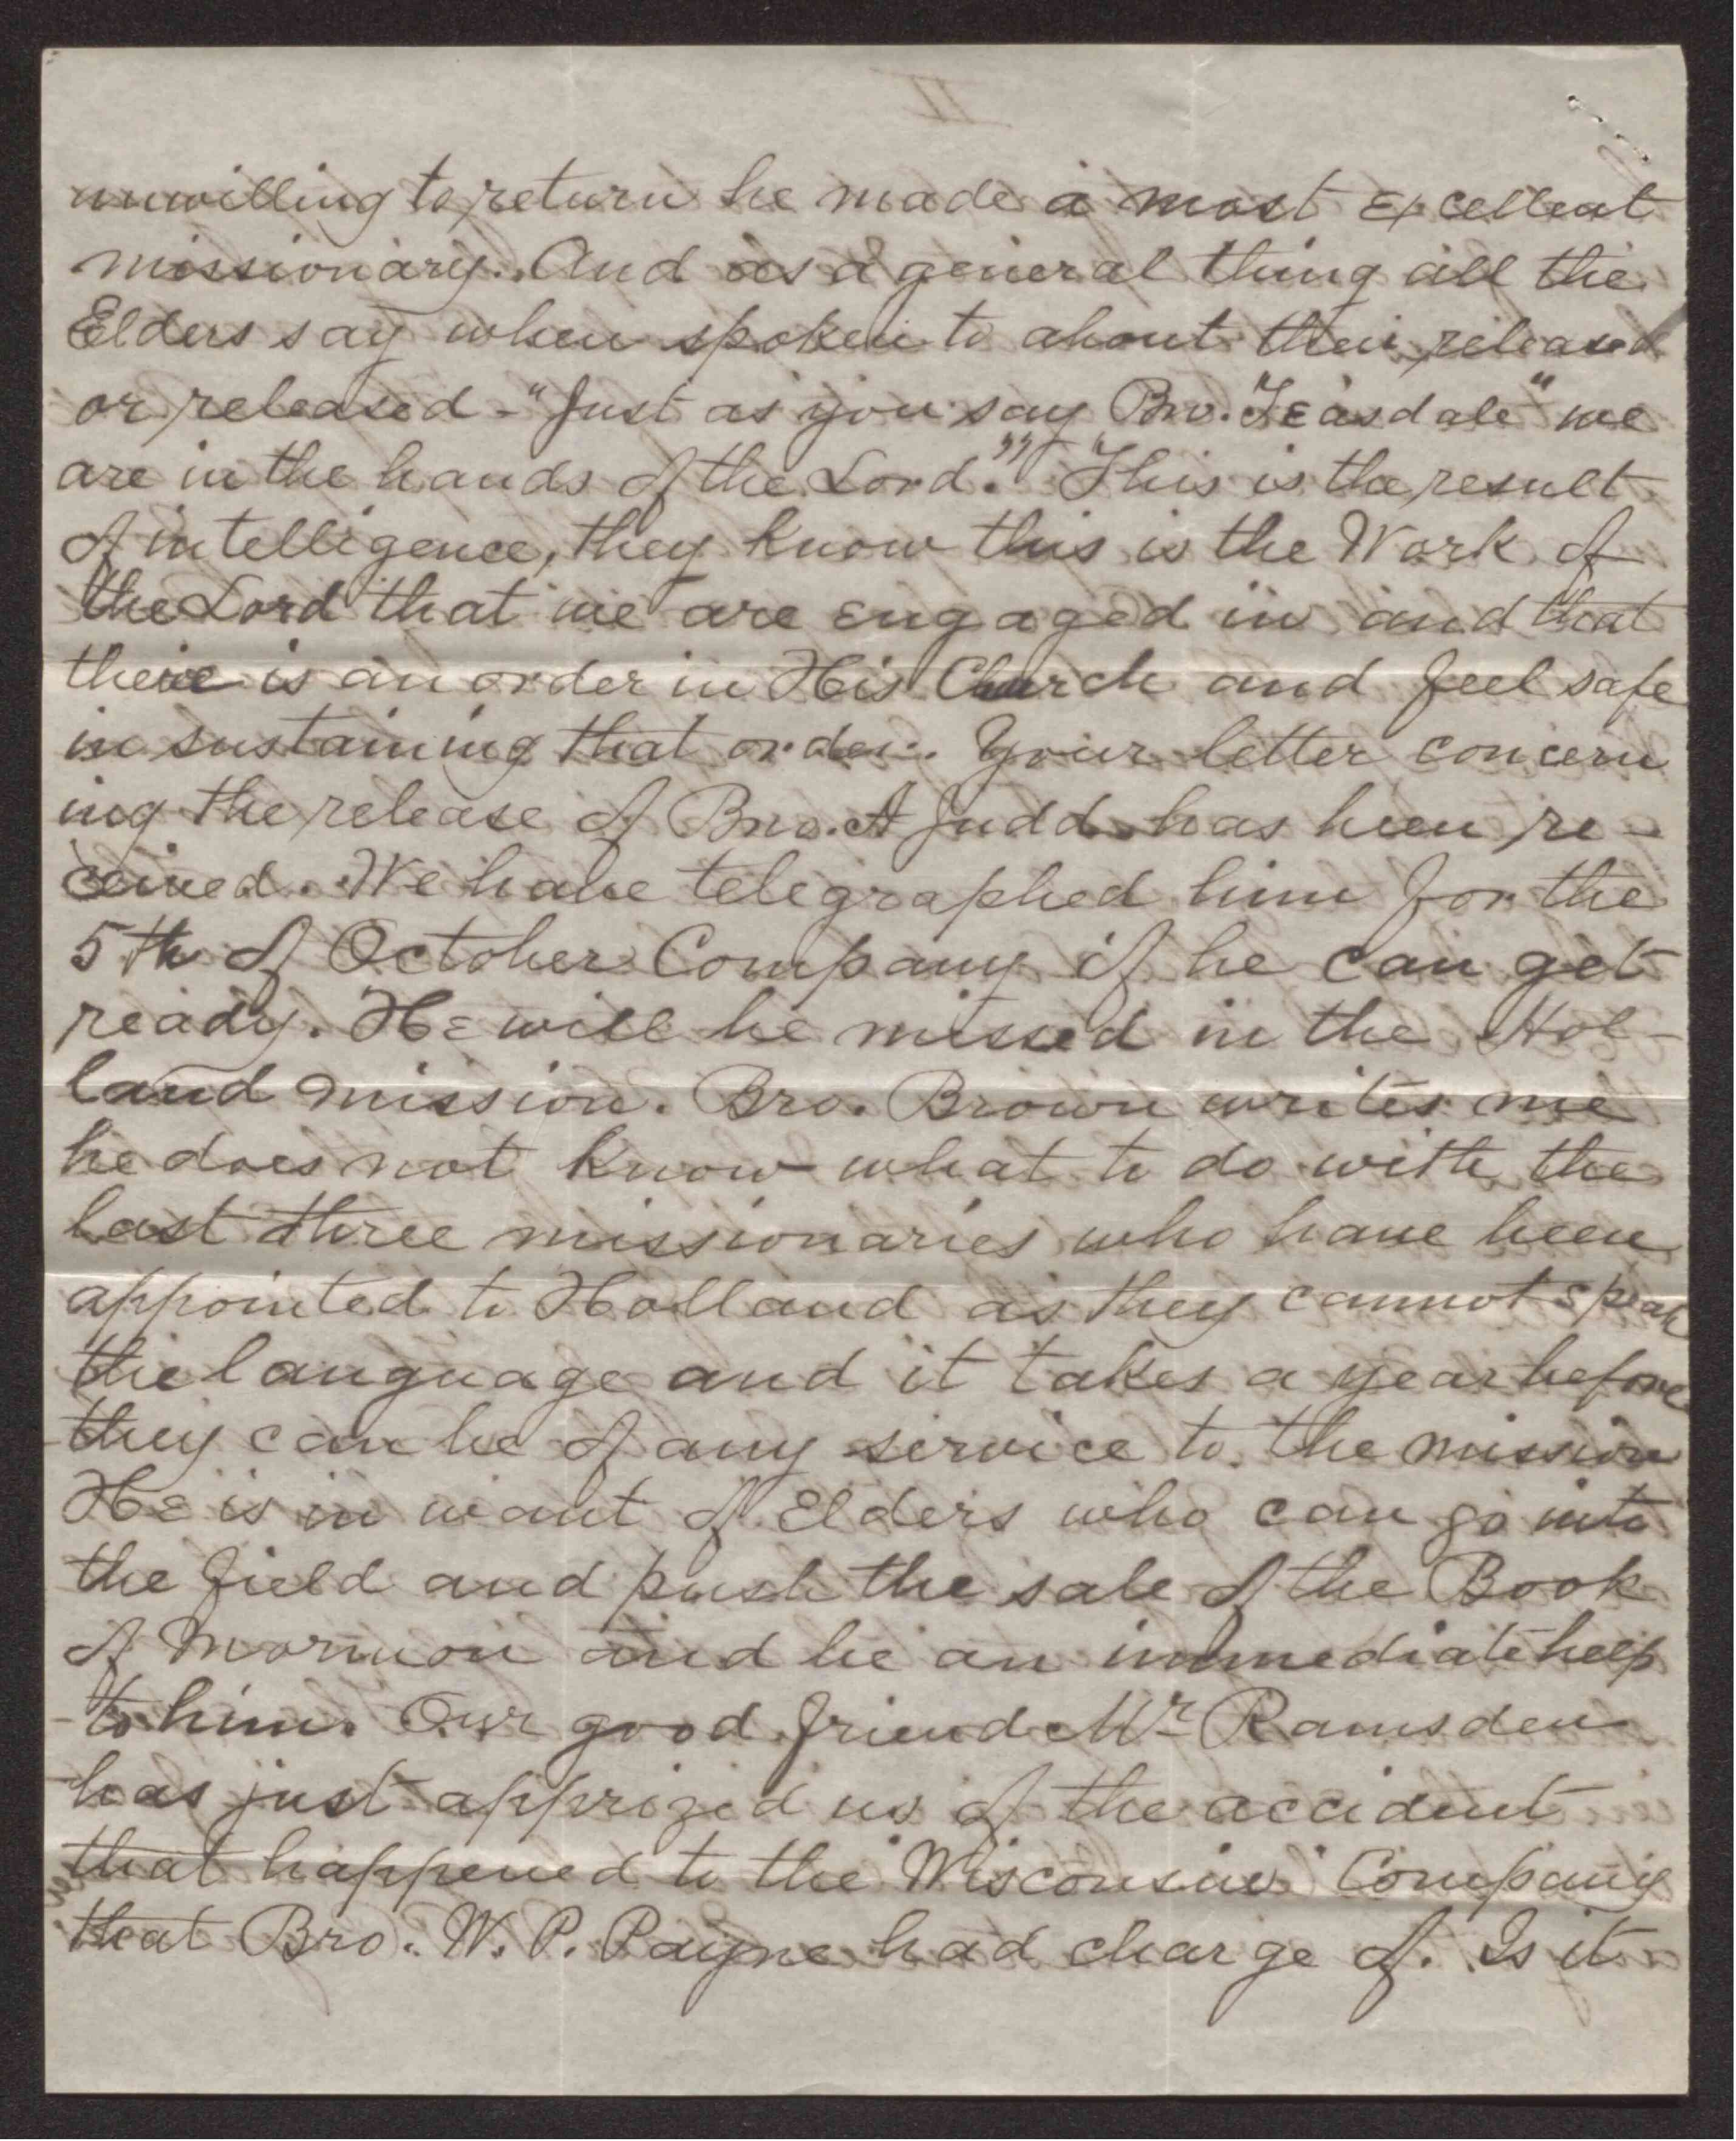 II
unwilling to return he made a most excellent
missionary. And as a general thing all the
Elders say when spoken to about their released
or released - "Just as you say Bro. "Teasdale" we
are in the hands of the Lord."" This is the result
of intelligence, they know this is the Work of
the Lord that we are engaged in and that
there is an order in His Church and feel safe
in sustaining that order. Your letter concern
ing the release of Bro. A Judd has been re-
ceived. We have telegraphed him for the
5th of October Company if he can get
ready. He will be missed in the Hol-
land mission. Bro. Brown writes me
he does not know what to do with the
last three missionaries who have been
appointed to Holland as they cannot speak
the language and it takes a year before
they can be of any service to the mission
He is in want of Elders who can go into
the field and push the sale of the Book
of Mormon and be an immediate help
to him. Our good friend Mr Ramsden
has just apprized us of the accident
that happened to the "Wisconsin" Company
that Bro. W. P. Payne had charge of. Is it